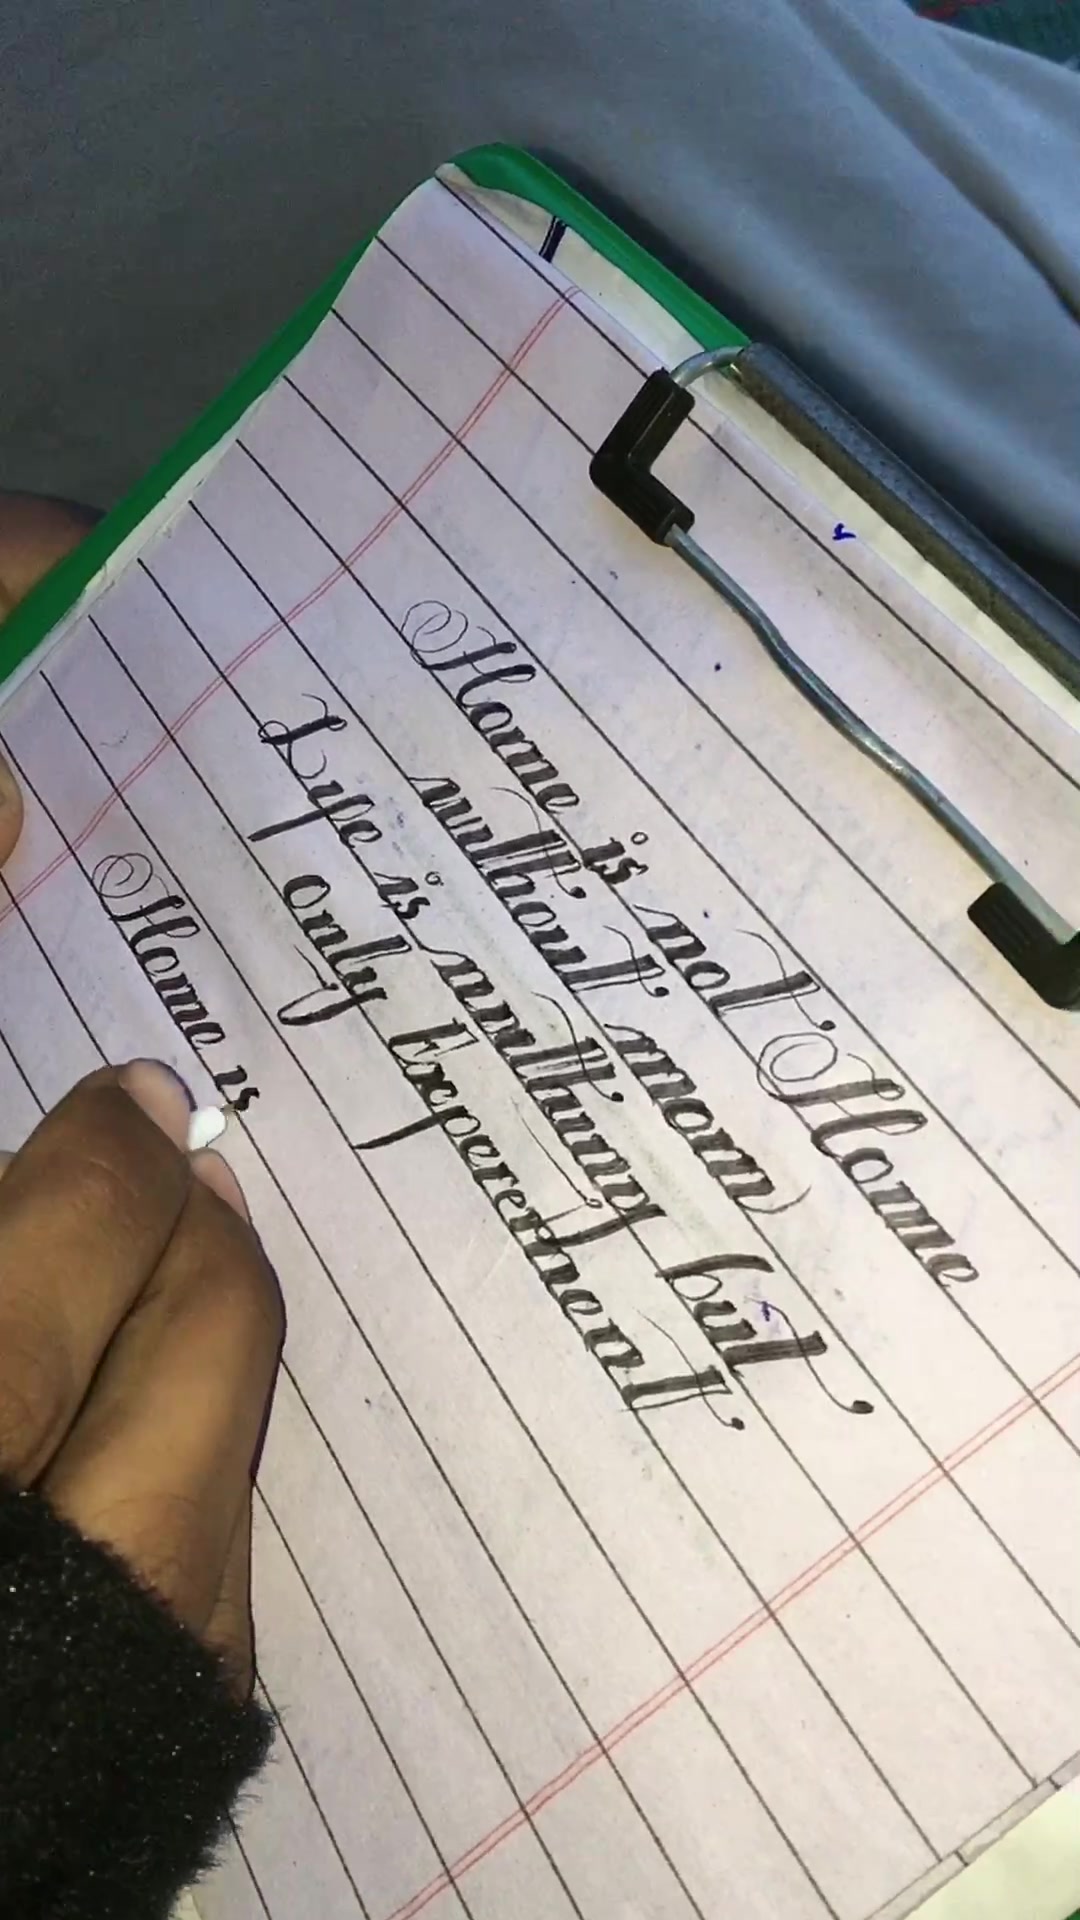 Home is not Home
without mom
Life is nothing but
only Experement
Home is